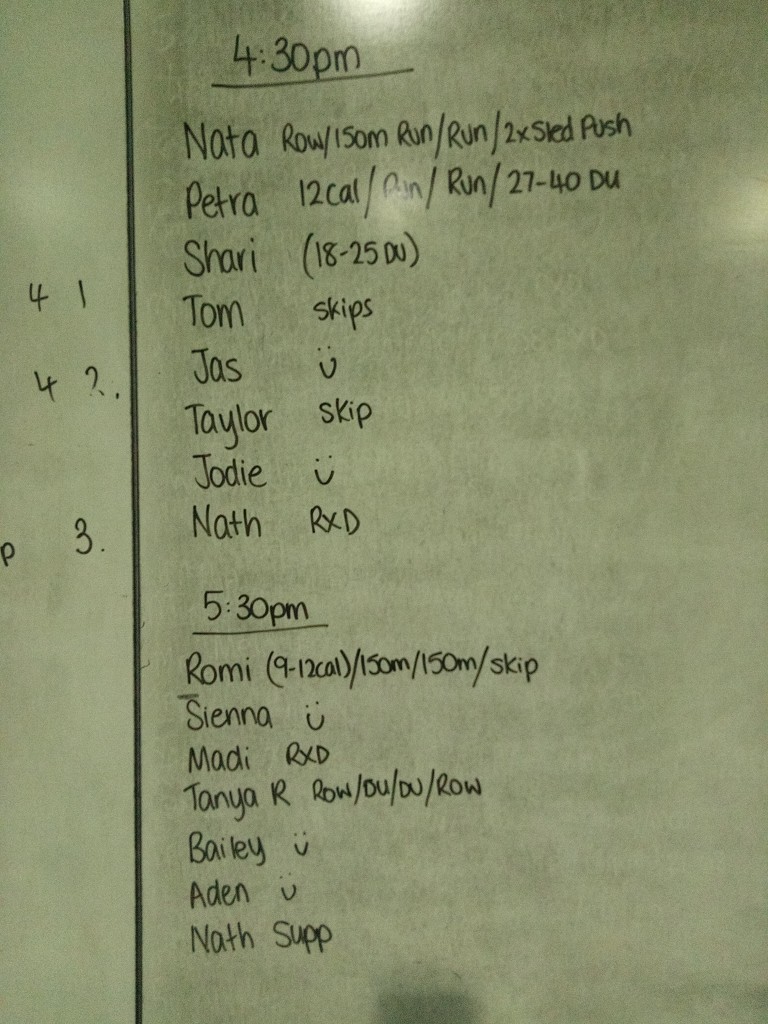 4:30pm
Nata Row/150m Run/Run/2xSled Push
Petra 12Cal/Run/Run/27-40 DU
Shari (18-25 DU)
Tom skips
Jas ü
Taylor skip
Jodie ü
Nath RXD
5:30pm
Romi (9-12cal)/150m/150m/skip
Sienna ü
Madi RXD
Tanya R Row/DU/DU/Row
Bailey ü
Aden ü
Nath Supp
4 1
4 2.
p 3.